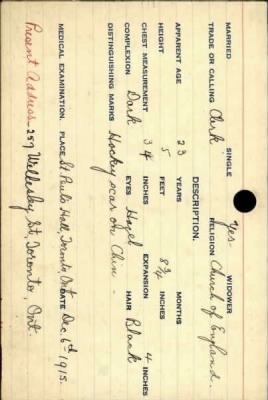 MARRIED SINGLE Yes- WIDOWER
TRADE OR CALLING Clerk RELIGION Church of England.
DESCRIPTION.
APPARENT AGE 23 YEARS MONTHS
HEIGHT 5 FEET 8¾ INCHES
CHEST MEASUREMENT 34 INCHES EXPANSION 4 INCHES
COMPLEXION Dark EYES Hazel HAIR Black
DISTINGUISHING MARKS Hockey scar on Chin -
MEDICAL EXAMINATION. PLACE St Pauls Hall, Toronto Ont DATE Dec 6th 1915.
Present Address - 257 Wellesley St, Toronto, Ont.